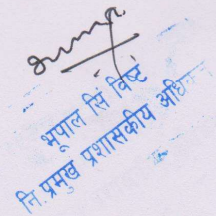 भूपाल सिं विष्ट
नि.प्रमुख प्रशासकीय अधि